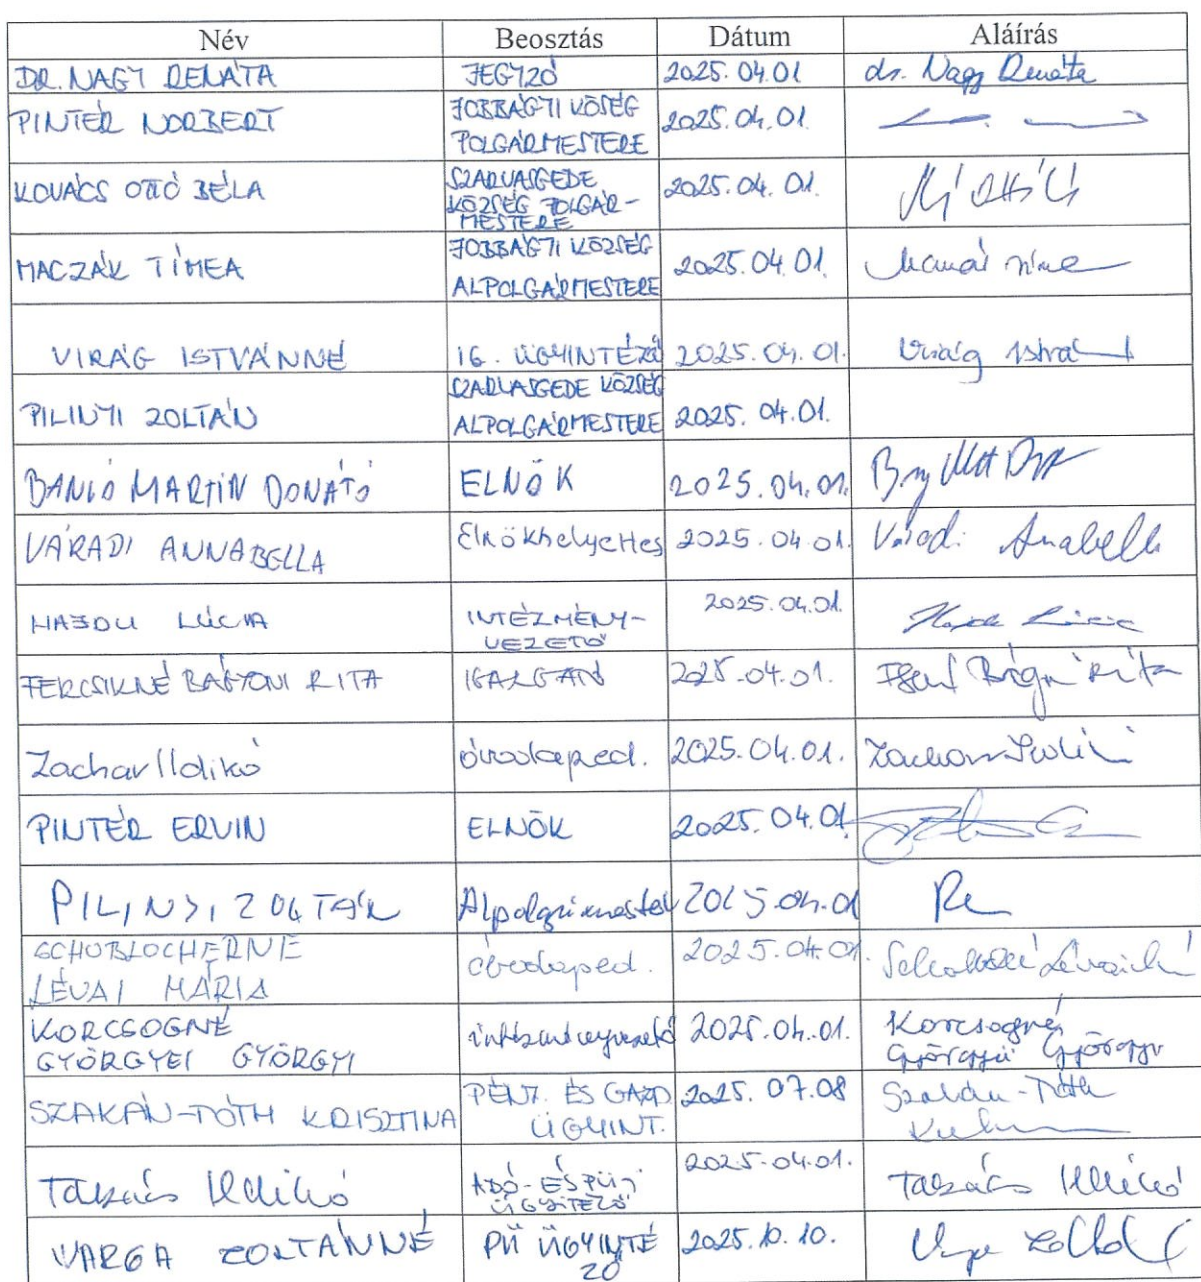 Név Beosztás Dátum Aláírás
DR. NAGY RENÁTA JEGYZŐ 2025.04.01 dr. Nagy Renáta
PINTÉR NORBERT JOBBÁGYI KÖSÉG POLGÁRMESTERE 2025.04.01.
KOVÁCS OTTÓ BÉLA SZARVASGEDE KÖZSÉG POLGÁR-MESTERE 2025.04.01.
MACZÁK TÍMEA JOBBÁGYI KÖZSÉG ALPOLGÁRMESTERE 2025.04.01.
VIRÁG ISTVÁNNÉ IG. ÜGYINTÉZŐ 2025.04.01. Virág
PILINYI ZOLTÁN SZARVASGEDE KÖZSÉG ALPOLGÁRMESTERE 2025.04.01.
MARTIN DONÁTÓ ELNÖK 2025.04.01.
VÁRADI ANNABELLA Elnökhelyettes 2025.04.01. Váradi Anabella
LÚCIA INTÉZMÉNY-VEZETŐ 2025.04.01.
FERCSIKNÉ BÁGYONI RITA 2025.04.01. Rita
Zachar Ildikó óvodaped. 2025.04.01. Zachar Ildikó
PINTÉR ERVIN ELNÖK 2025.04.01.
PILINYI ZOLTÁN Alpolgármester 2025.04.01
SCHOBLOCHERNÉ LÉVAI MÁRIA óvodaped. 2025.04.01.
KORCSOGNÉ GYÖRGYEI GYÖRGYI intézményvezető 2025.04.01. Korcsogné Györgyei Györgyi
SZAKÁN-TÓTH KRISZTINA PÉNZ. ÉS GAZD ÜGYINT. 2025.07.08 Szakán-Tóth
Takács Ildikó ADÓ-ÉS PÜ-i 2025.04.01. Takács Ildikó
VARGA ZOLTÁNNÉ PÜ ÜGYINTÉZŐ 2025.10.10.